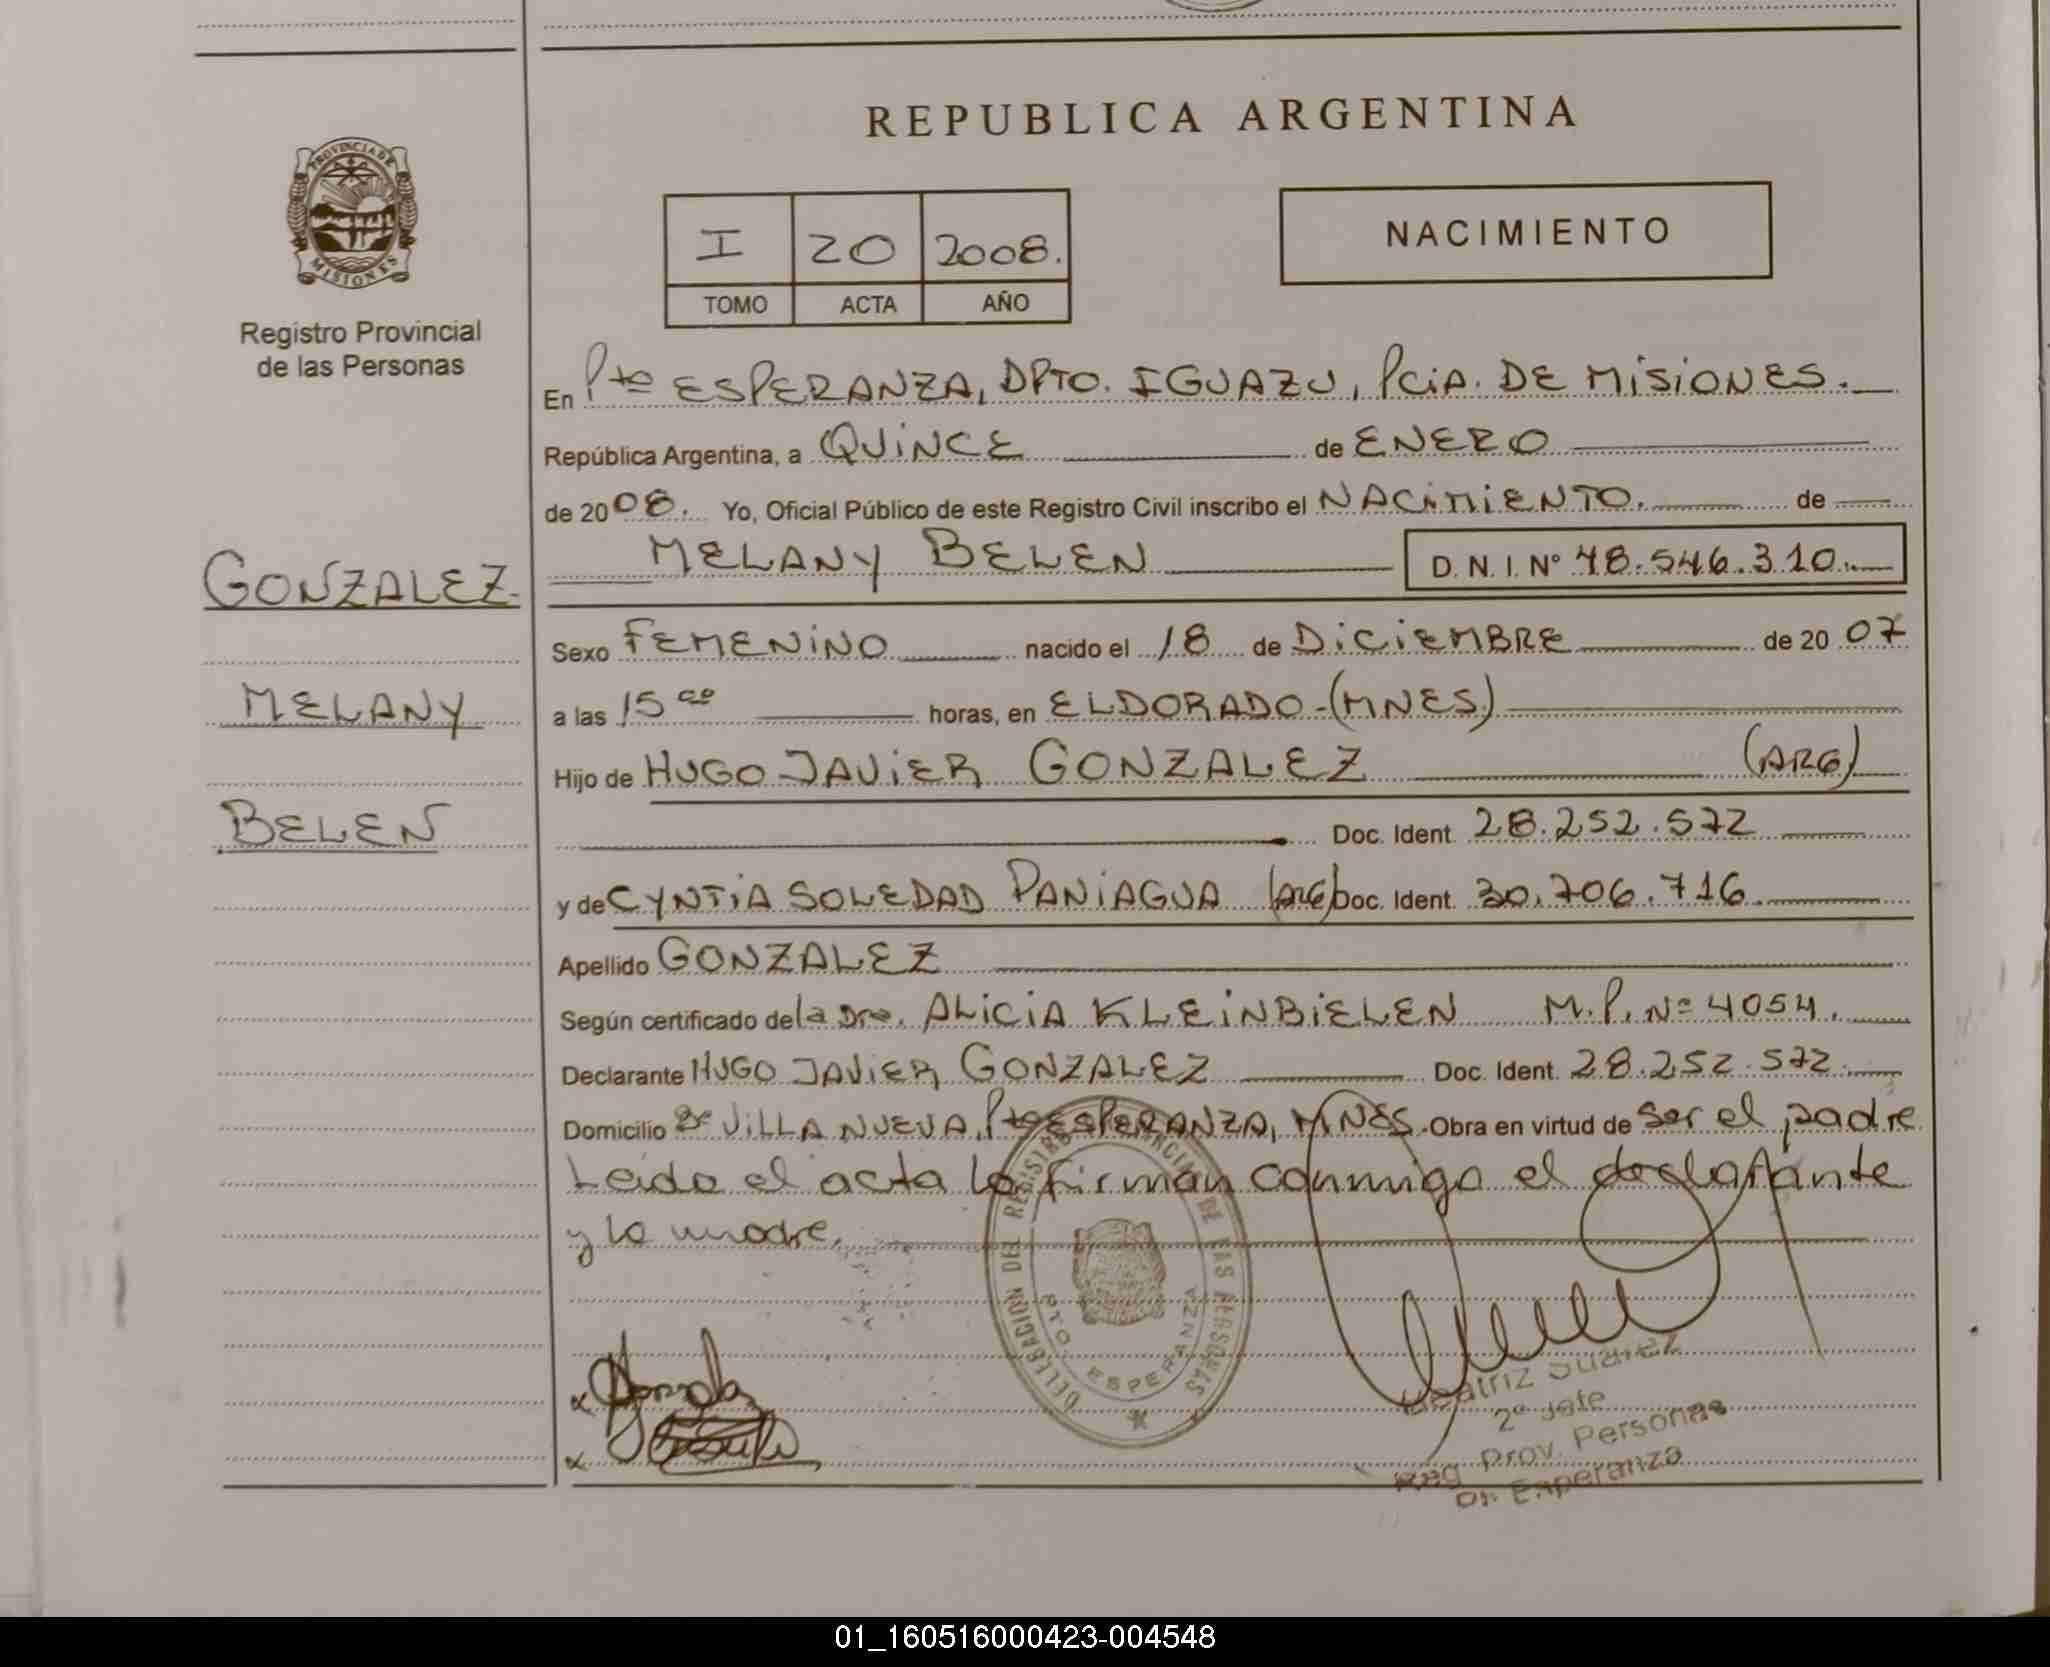 REPUBLICA ARGENTINA
PROVINCIA DE
MISIONES
Registro Provincial
de las Personas
I 20 2008.
TOMO ACTA AÑO
NACIMIENTO
En Pto ESPERANZA, DPTO. IGUAZU, PciA. DE MiSiONES.
República Argentina, a QUiNCE de ENERO
de 2008. Yo, Oficial Público de este Registro Civil inscribo el NACiMiENTO. de
GONZALEZ
MELANY BELEN D. N. I. Nº 48.546.310
Sexo FEMENiNO nacido el 18 de DiCiEMBRE de 2007
MELANY
a las 15 00 horas, en ELDORADO-(MNES)
Hijo de HUGO JAViER GONZALEZ (ARG)
BELEN
Doc. Ident. 28.252.572
y de CYNTiA SOLEDAD PANiAGUA (ARG) Doc. Ident. 30.706.716
Apellido GONZALEZ
Según certificado de la Dra. ALiCiA KLEiNBiELEN M.P. Nº 4054.
Declarante HUGO JAViER GONZALEZ Doc. Ident. 28.252.572
Domicilio Bº ViLLA NUEVA, Pto ESPERANZA, MNES. Obra en virtud de ser el padre
Leida el acta la firman conmigo el declarante
y la madre.
DELEGACION DEL REGISTRO PROVINCIAL DE LAS PERSONAS
PTO. ESPERANZA
Beatriz Suarez
2º Jefe
Reg. Prov. Personas
Pto. Esperanza
01_160516000423-004548